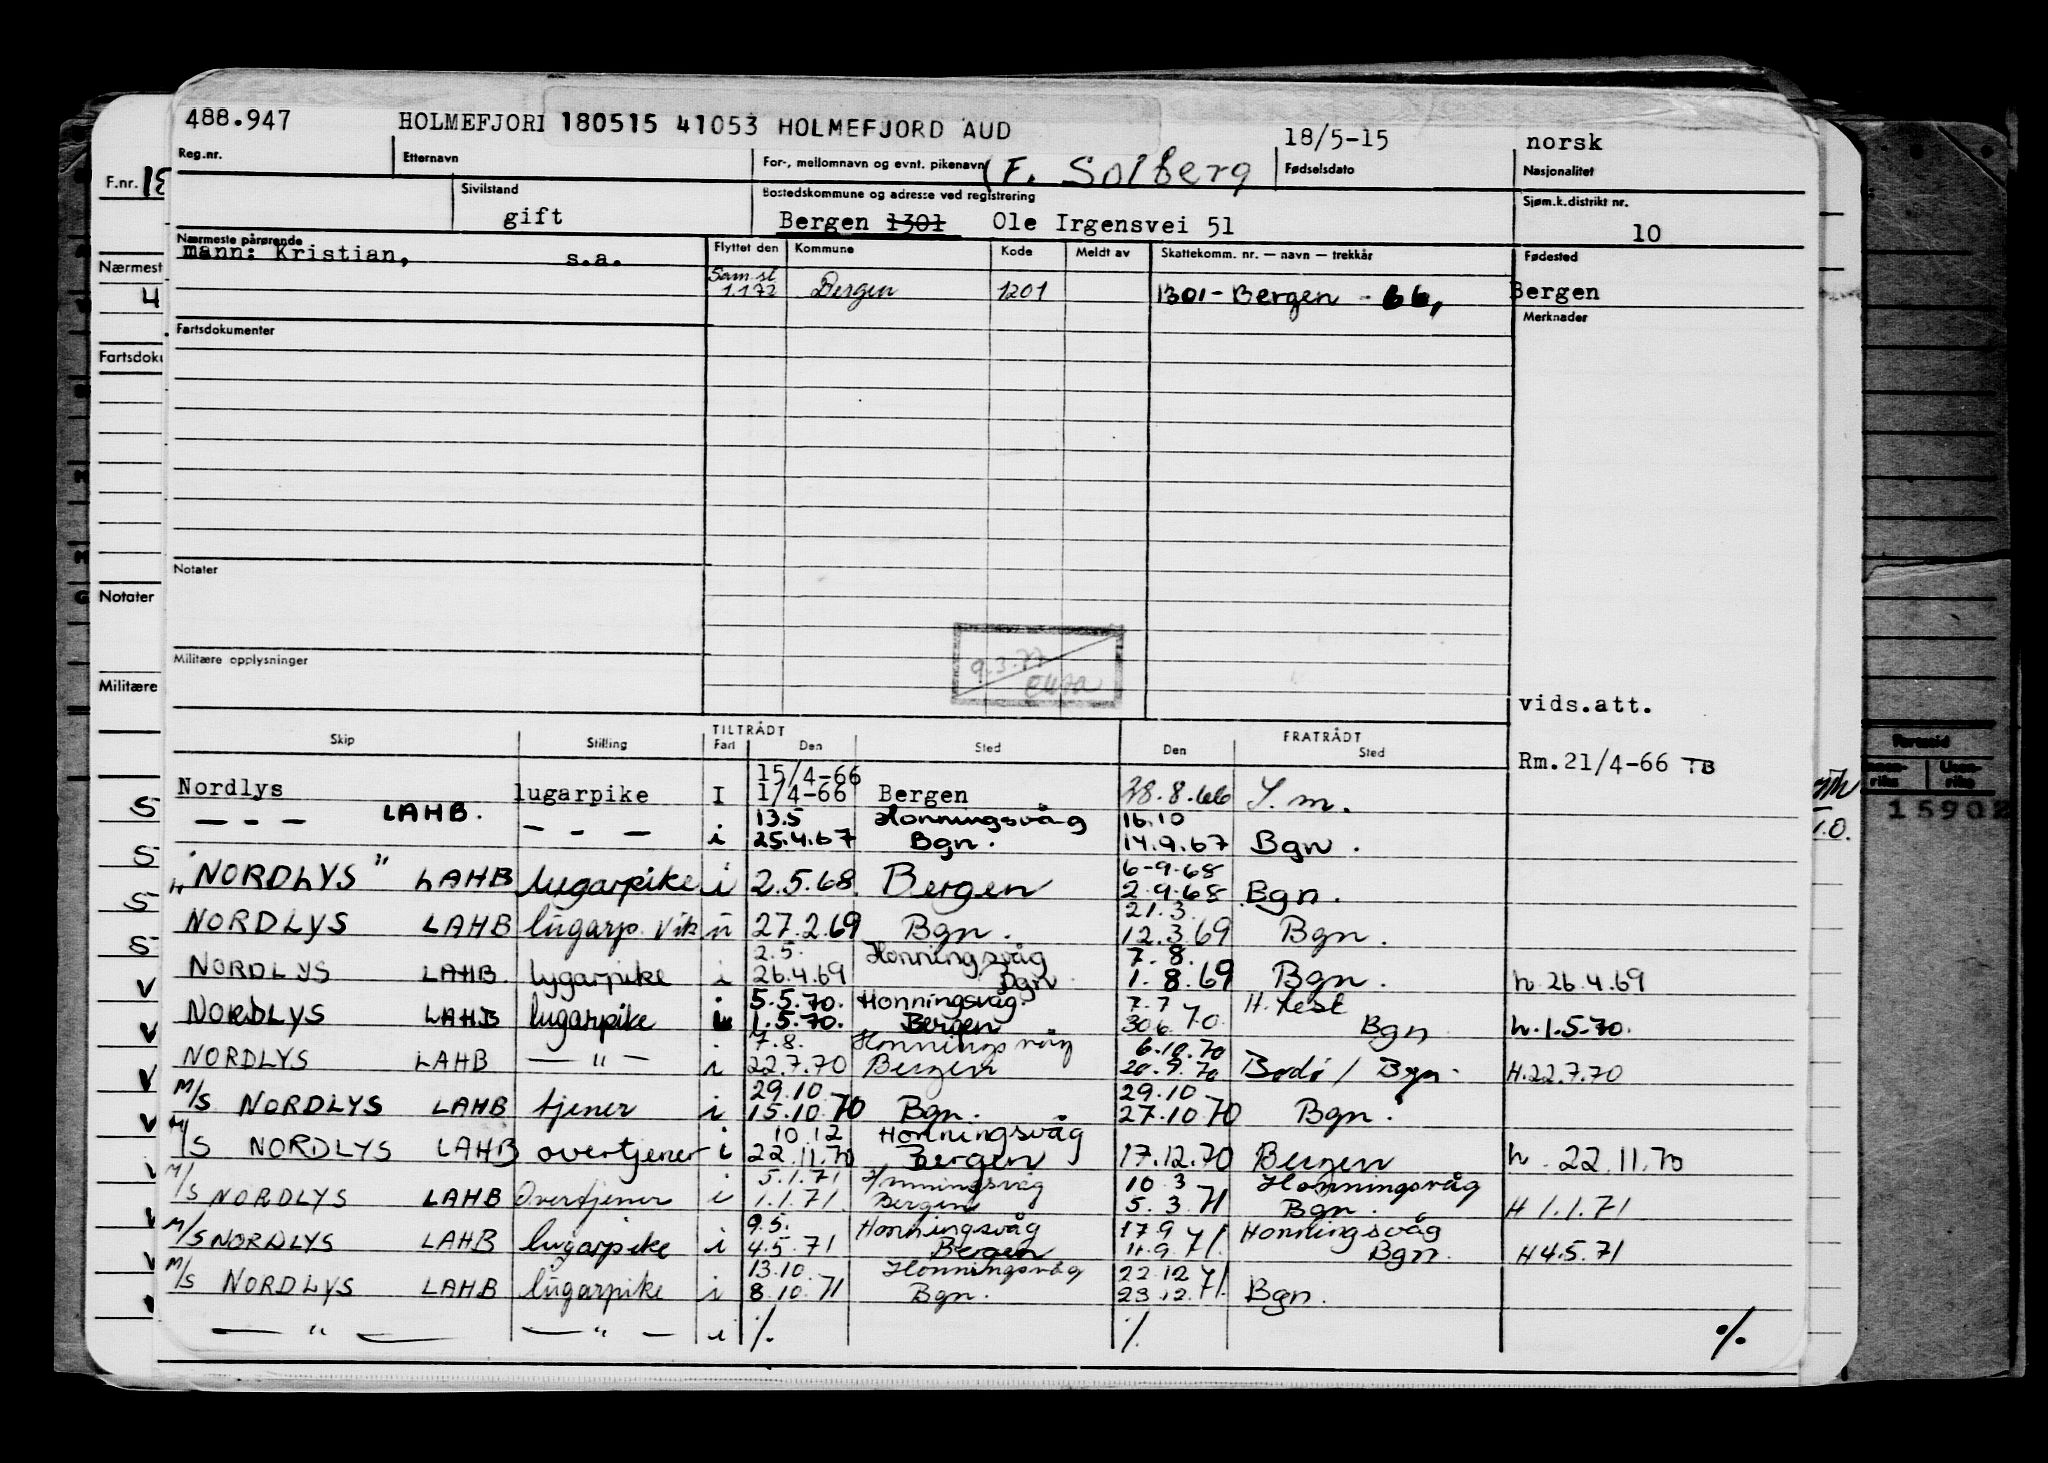 488.947 HOLMEFJORI 180515 41053 HOLMEFJORD AUD 18/5-15 norsk
Reg.nr. Etternavn For-, mellomnavn og evnt. pikenavn (F. Solberg Fødselsdato Nasjonalitet
F.nr. 18
Sivilstand Bostedskommune og adresse ved registrering Sjøm.k.distrikt nr.
gift Bergen 1301 Ole Irgensvei 51 10
Nærmeste pårørende Flyttet den Kommune Kode Meldt av Skattekomm. nr. — navn — trekkår Fødested
mann: Kristian, s.a.
Nærmest
Sam.sl.
1.1 72 Bergen 1201 1301 - Bergen - 66, Bergen
4
Fartsdokumenter Merknader
Fartsdoku
Notater
Notater
9.3.77
Militære opplysninger
Militære
vids.att.
TILTRÅDT FRATRÅDT
Skip Stilling Fart Den Sted Den Sted
Rm.21/4-66 TB
15/4-66
Nordlys lugarpike I 1/4-66 Bergen 28.8.66 S.m.
S
— - — LAHB. — - — 13.5 Honningsvåg 16.10
i 25.4.67 Bgn. 14.9.67 Bgn.
S
6-9-68
"NORDLYS" LAHB lugarpike i 2.5.68 Bergen 2.9.68 Bgn.
S
21.3.
NORDLYS LAHB lugarp. vik ü 27.2.69 Bgn. 12.3.69 Bgn.
S
2.5. Honningsvåg 7.8.
NORDLYS LAHB lygarpike i 26.4.69 Bgn 1.8.69 Bgn. h. 26.4.69
V
i 5.5.70. Honningsvåg 7.7 H. fest
NORDLYS LAHB lugarpike 1.5.70. Bergen 30.6 70. Bgn h.1.5.70.
V
7.8. Honningsvåg 6.10.70
NORDLYS LAHB — " — i 22.7.70 Bergen 20.9.70 Bodø / Bgn. H.22.7.70
V
29.10. 29.10
M/S NORDLYS LAHB tjener i 15.10.70 Bgn. 27.10.70 Bgn.
V
10.12 Honningsvåg
M/S NORDLYS LAHB overtjener i 22.11.70 Bergen 17.12.70 Bergen h. 22.11.70
5.1.71 Honningsvåg 10.3 Honningsvåg
M/S NORDLYS LAHB Overtjener i 1.1.71 Bergen 5.3.71 Bgn. H 1.1.71
9.5. Honningsvåg 17.9 Honningsvåg
M/S NORDLYS LAHB lugarpike i 4.5.71 Bergen 11.9.71. Bgn. H 4.5.71
13.10. Honningsvåg 22.12
M/S NORDLYS LAHB lugarpike i 8.10.71 Bgn. 23.12.71. Bgn.
— " — — " — i ⁒ ⁒ ⁒
15902